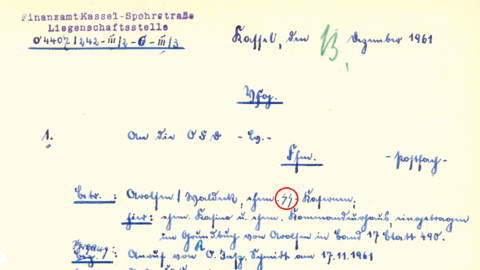 Finanzamt Kassel-Spohrstraße
Liegenschaftsstelle
O 4407/242-III/2-G-III/3
Kassel, den 13. Dezember 1961
Vfg.
1. An die OFD - Lv. -
Ffm. - Postfach -
Betr.: Arolsen/Waldeck, ehem. SS Kasernen;
hier: ehem. Kasino u. ehem. Kommandeurhaus, eingetragen
im Grundbuch von Arolsen in Band 17 Blatt 490.
Anruf von O. Insp. Schmitt am 17.11.1961